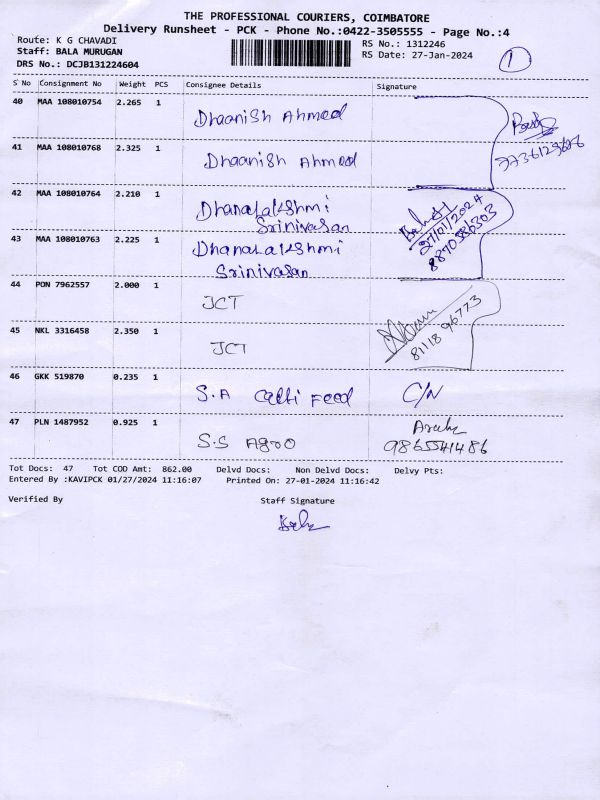 THE PROFESSIONAL COURIERS, COIMBATORE
Delivery Runsheet - PCK - Phone No.:0422-3505555 - Page No.:4
Route: K G CHAVADI
Staff: BALA MURUGAN
DRS No.: DCJB131224604
RS No.: 1312246
RS Date: 27-Jan-2024
1
S No Consignment No Weight PCS Consignee Details Signature
40 MAA 108010754 2.265 1 Dhaanish Ahmed
41 MAA 108010768 2.325 1 Dhaanish Ahmed
42 MAA 108010764 2.210 1 Dhanalakshmi
Srinivasan
27/01/2024
8870586303
43 MAA 108010763 2.225 1 Dhanalakshmi
Srinivasan
44 PON 7962557 2.000 1 JCT
45 NKL 3316458 2.350 1 JCT
81118 96773
46 GKK 519870 0.235 1 S.A Cattl Feed C/N
47 PLN 1487952 0.925 1 S.S Agro
9865541486
Tot Docs: 47 Tot COD Amt: 862.00 Delvd Docs: Non Delvd Docs: Delvy Pts:
Entered By :KAVIPCK 01/27/2024 11:16:07 Printed On: 27-01-2024 11:16:42
Verified By Staff Signature